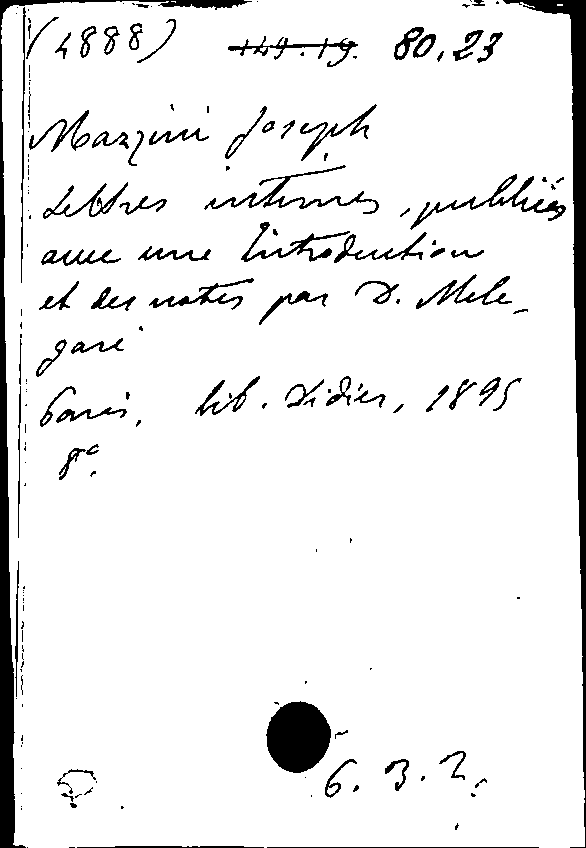 (4888) 149.19. 80.23
Mazzini Joseph
Lettres intimes, publiées
avec une Introduction
et des notes par D. Mele-
gari
Paris, lib. Didier, 1895
8°.
6.3.2.